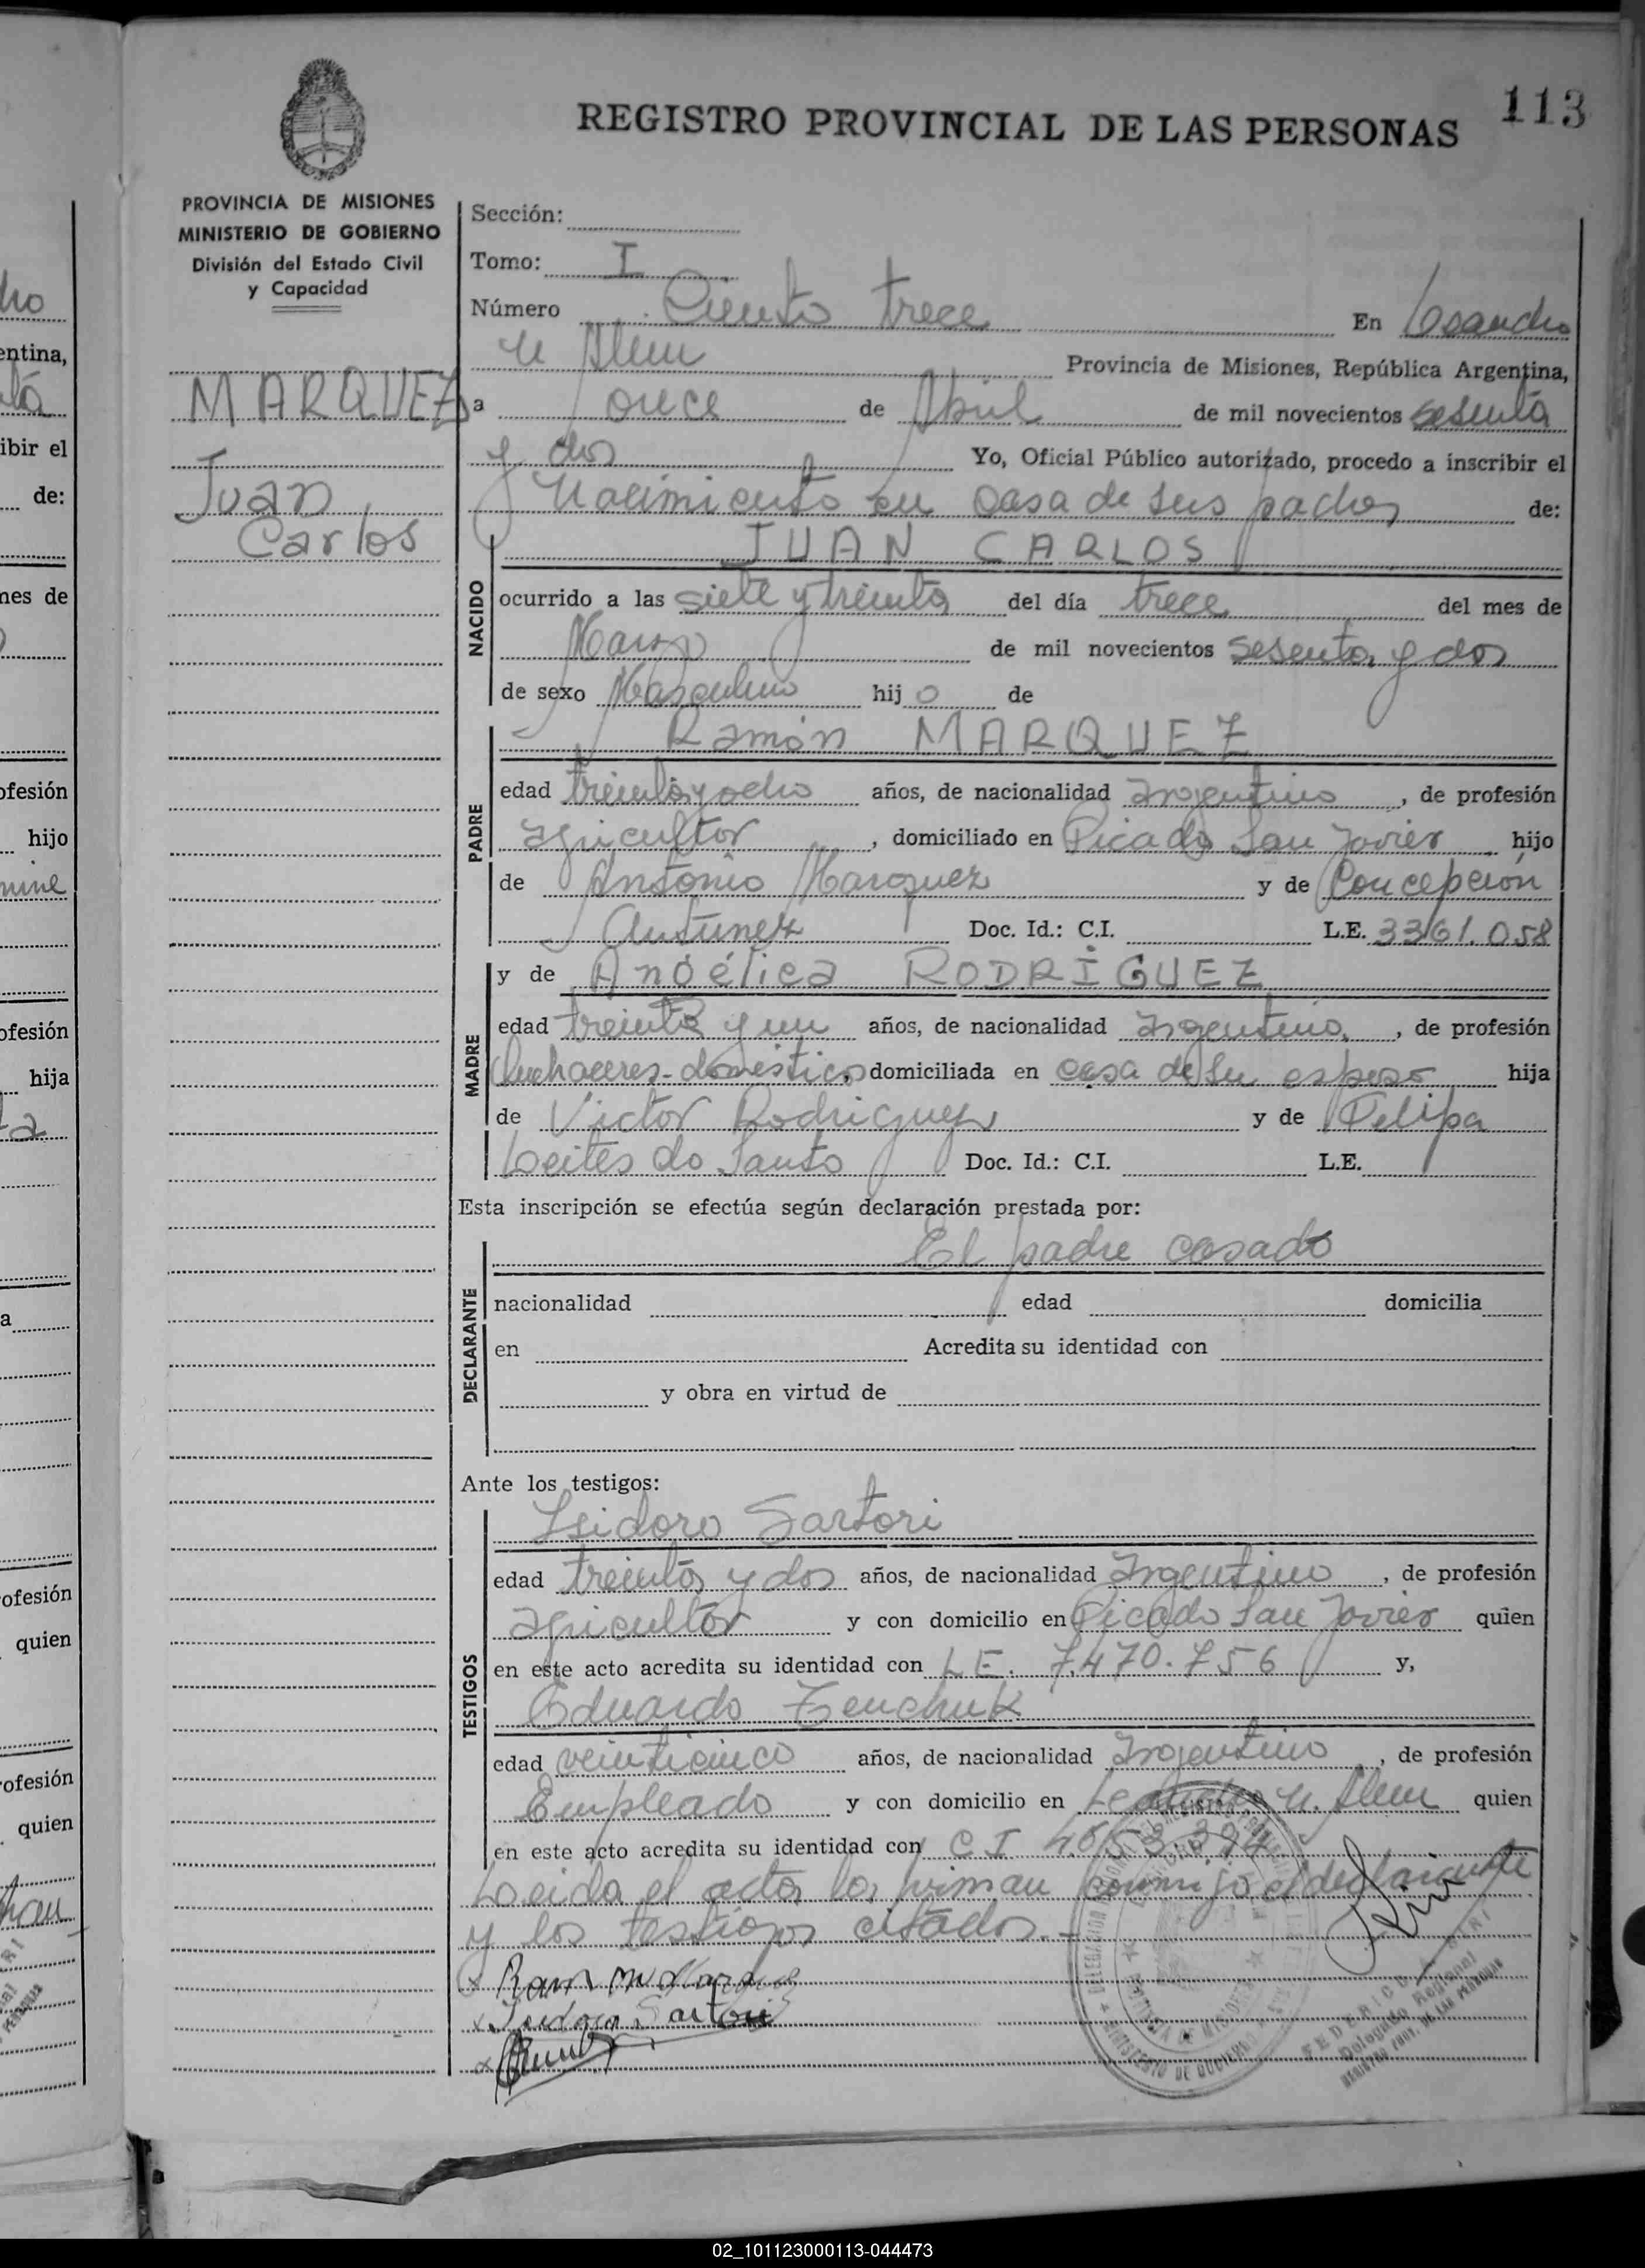 113
REGISTRO PROVINCIAL DE LAS PERSONAS
PROVINCIA DE MISIONES
MINISTERIO DE GOBIERNO
División del Estado Civil
y Capacidad
MARQUEZ
Juan
Carlos
Sección:
Tomo: I
Número Ciento trece En Leandro
N Alem Provincia de Misiones, República Argentina,
a once de Abril de mil novecientos sesenta
y dos Yo, Oficial Público autorizado, procedo a inscribir el
Nacimiento en casa de sus padres de:
JUAN CARLOS
NACIDO
ocurrido a las siete y treinta del día trece del mes de
Marzo de mil novecientos sesenta y dos
de sexo Masculino hijo de
Ramón MARQUEZ
PADRE
edad treinta y ocho años, de nacionalidad Argentino, de profesión
agricultor, domiciliado en Picada San Javier hijo
de Antonio Marquez y de Concepción
Antunez Doc. Id.: C.I. L.E. 3361.058
MADRE
y de RODRIGUEZ
edad treinta y un años, de nacionalidad Argentina, de profesión
Quehaceres-domésticos, domiciliada en casa de su esposo hija
de Victor Rodriguez y de Felipa
Leites do Santo Doc. Id.: C.I. L.E.
Esta inscripción se efectúa según declaración prestada por:
El padre casado
DECLARANTE
nacionalidad edad domicilia
en Acredita su identidad con
y obra en virtud de
Ante los testigos:
Isidoro Sartori
TESTIGOS
edad treinta y dos años, de nacionalidad Argentino, de profesión
agricultor y con domicilio en Picada San Javier quien
en este acto acredita su identidad con L E. 7.470.756 y,
Eduardo Zenchuk
edad veinticinco años, de nacionalidad Argentino, de profesión
Empleado y con domicilio en Leandro N. Alem quien
en este acto acredita su identidad con C I
Leida el acta, la firman conmigo el declarante
y los testigos citados.-
x Ramon Marquez
x Isidoro Sartori
x
02_101123000113-044473